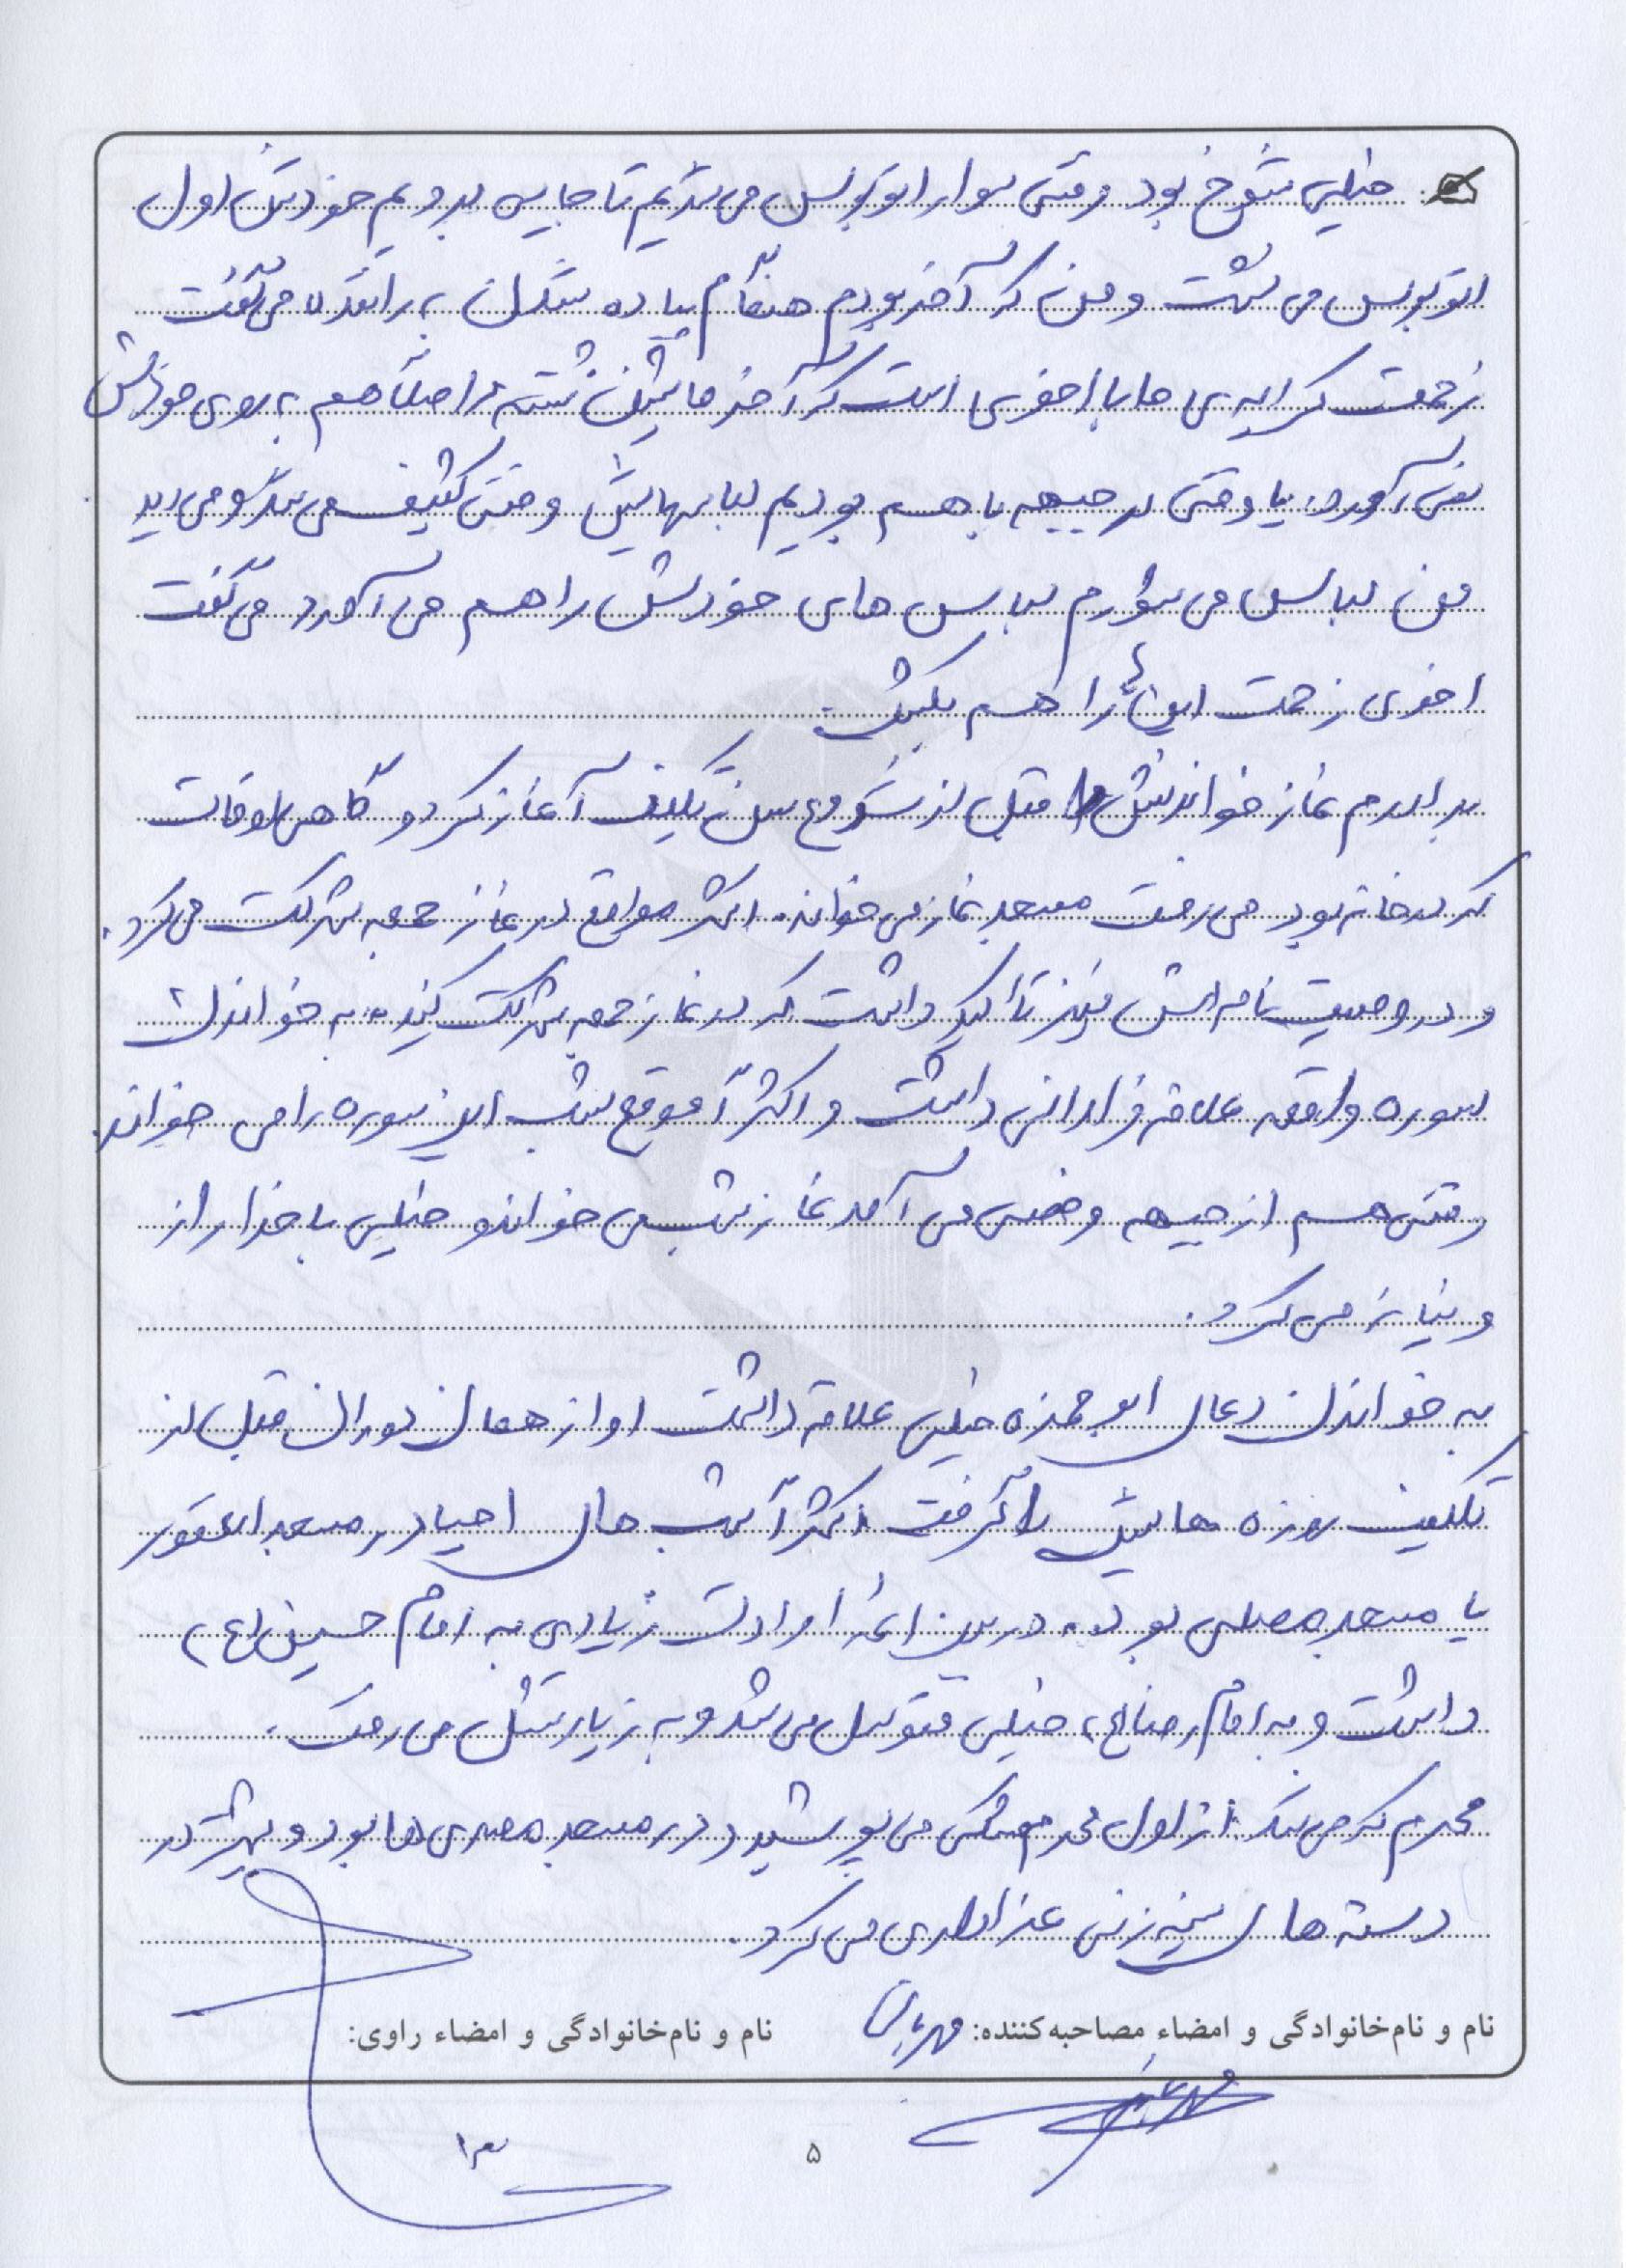 خیلی شوخ بود وقتی سوار اتوبوس می شدیم تا جایی برویم خودش اول
اتوبوس می نشست و من که آخر بودم هنگام پیاده شدن به راننده می گفت
زحمت کرایه ی ما با اخوی است که آخر ماشین نشسته و اصلاً هم به روی خودش
نمی آورد. یا وقتی در جبهه با هم بودیم لباسهایش وقتی کثیف می شد و می دید
من لباس می شورم لباس های خودش را هم می آورد می گفت
اخوی زحمت اینها را هم بکش.
برادرم نماز خواندنش را قبل از شروع سن تکلیف آغاز کرد و گاهی اوقات
که در خانه بود می رفت مسجد نماز می خواند. اکثر مواقع در نماز جمعه شرکت می کرد.
و در وصیت نامه اش نیز تأکید داشت که در نماز جمعه شرکت کنید. به خواندن
سوره واقعه علاقه فراوانی داشت و اکثراً موقع شب این سوره را می خواند.
وقتی هم از جبهه مرخصی می آمد نماز شب می خواند و خیلی با خدا راز
و نیاز می کرد.
به خواندن دعای ابوحمزه خیلی علاقه داشت او از همان دوران قبل از
تکلیف روزه هایش را گرفت اکثراً شب های احیا در مسجد
یا مسجد بود. در بین ائمه ارادت زیادی به امام حسین (ع)
داشت و به امام رضا (ع) خیلی متوسل می شد و به زیارتش می رفت.
محرم که می شد از اول محرم مشکی می پوشید و در مسجد ها بود و بیشتر در
دسته های سینه زنی عزاداری می کرد.
نام و نام‌خانوادگی و امضاء مصاحبه‌کننده: نام و نام‌خانوادگی و امضاء راوی:
۵